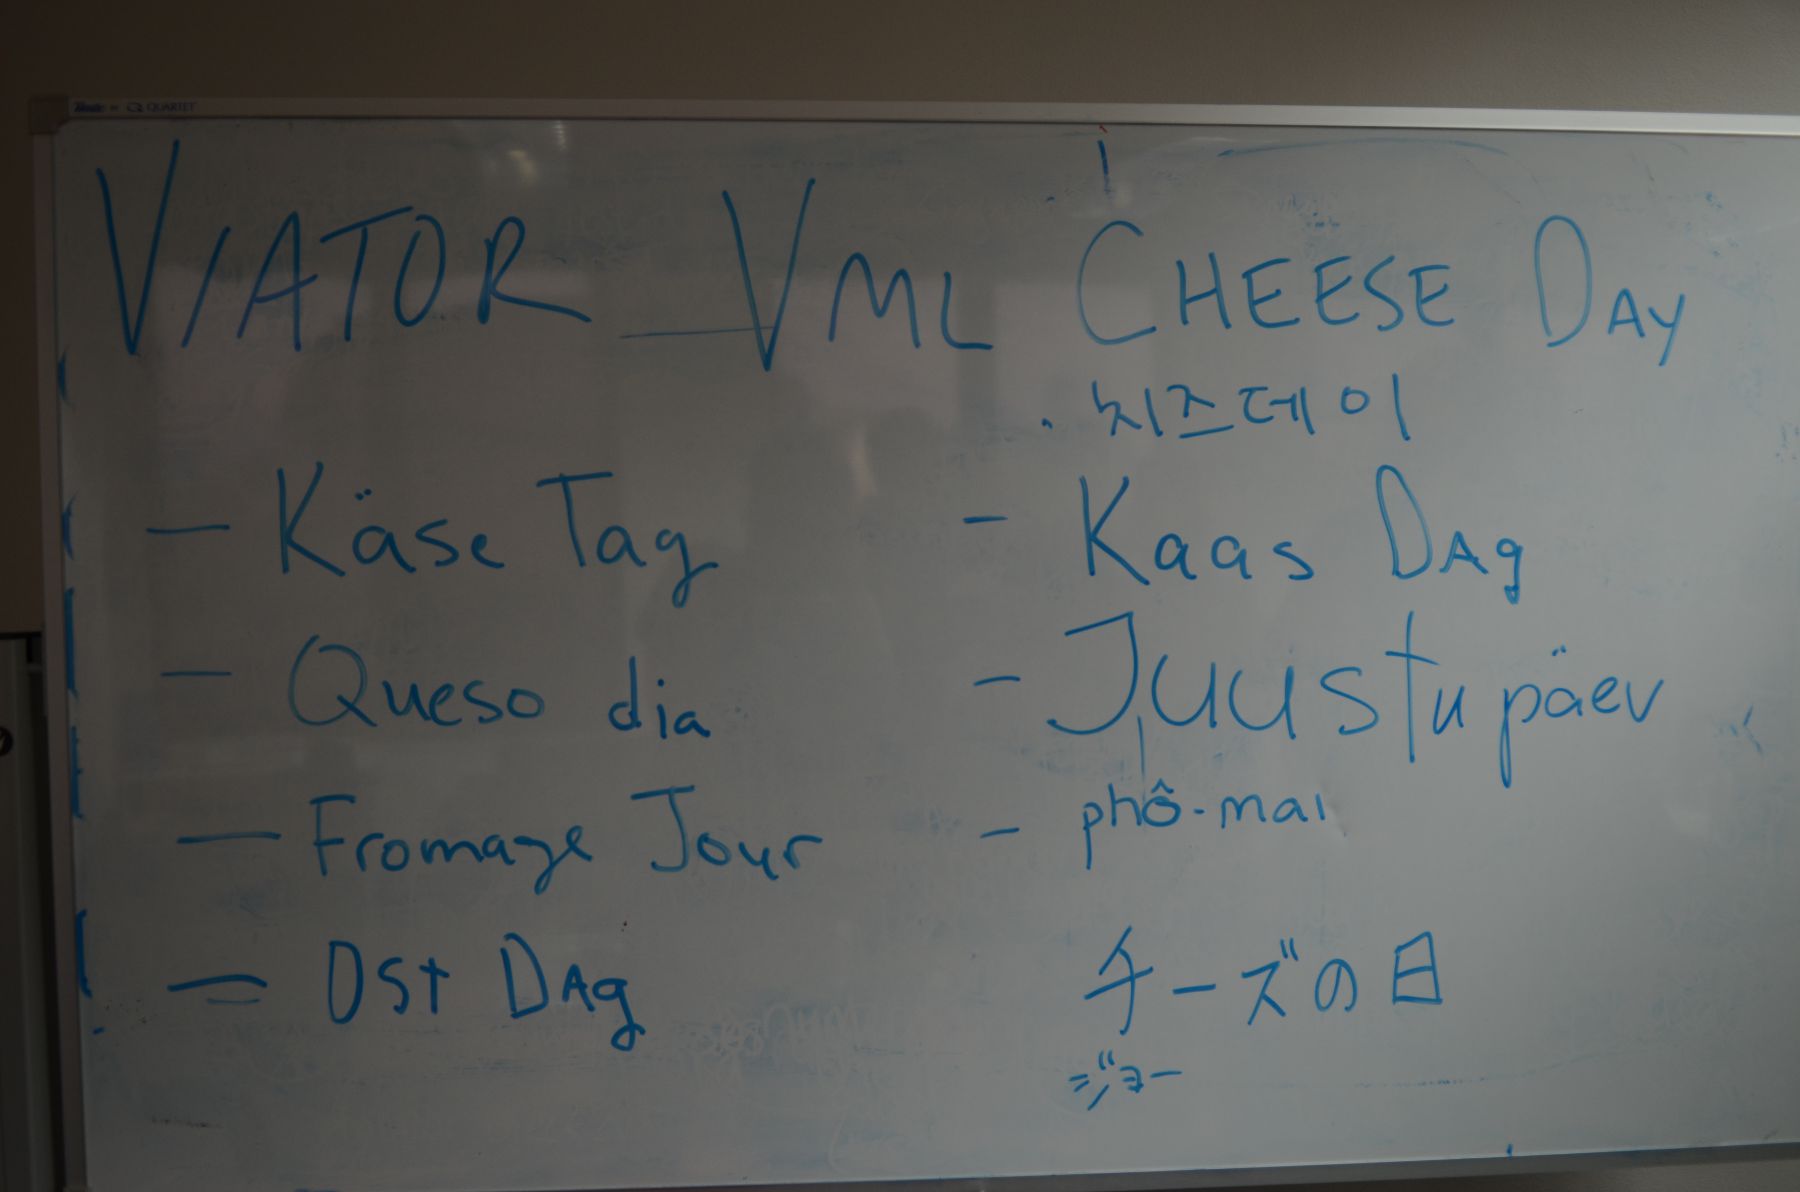 QUARTET
VIATOR _ VML CHEESE DAY
· 치즈데이
— Käse Tag
— Queso dia
— Fromage Jour
— OST DAg
- Kaas DAg
- Juustupäev
- phô-mai
チーズの日
ジョー